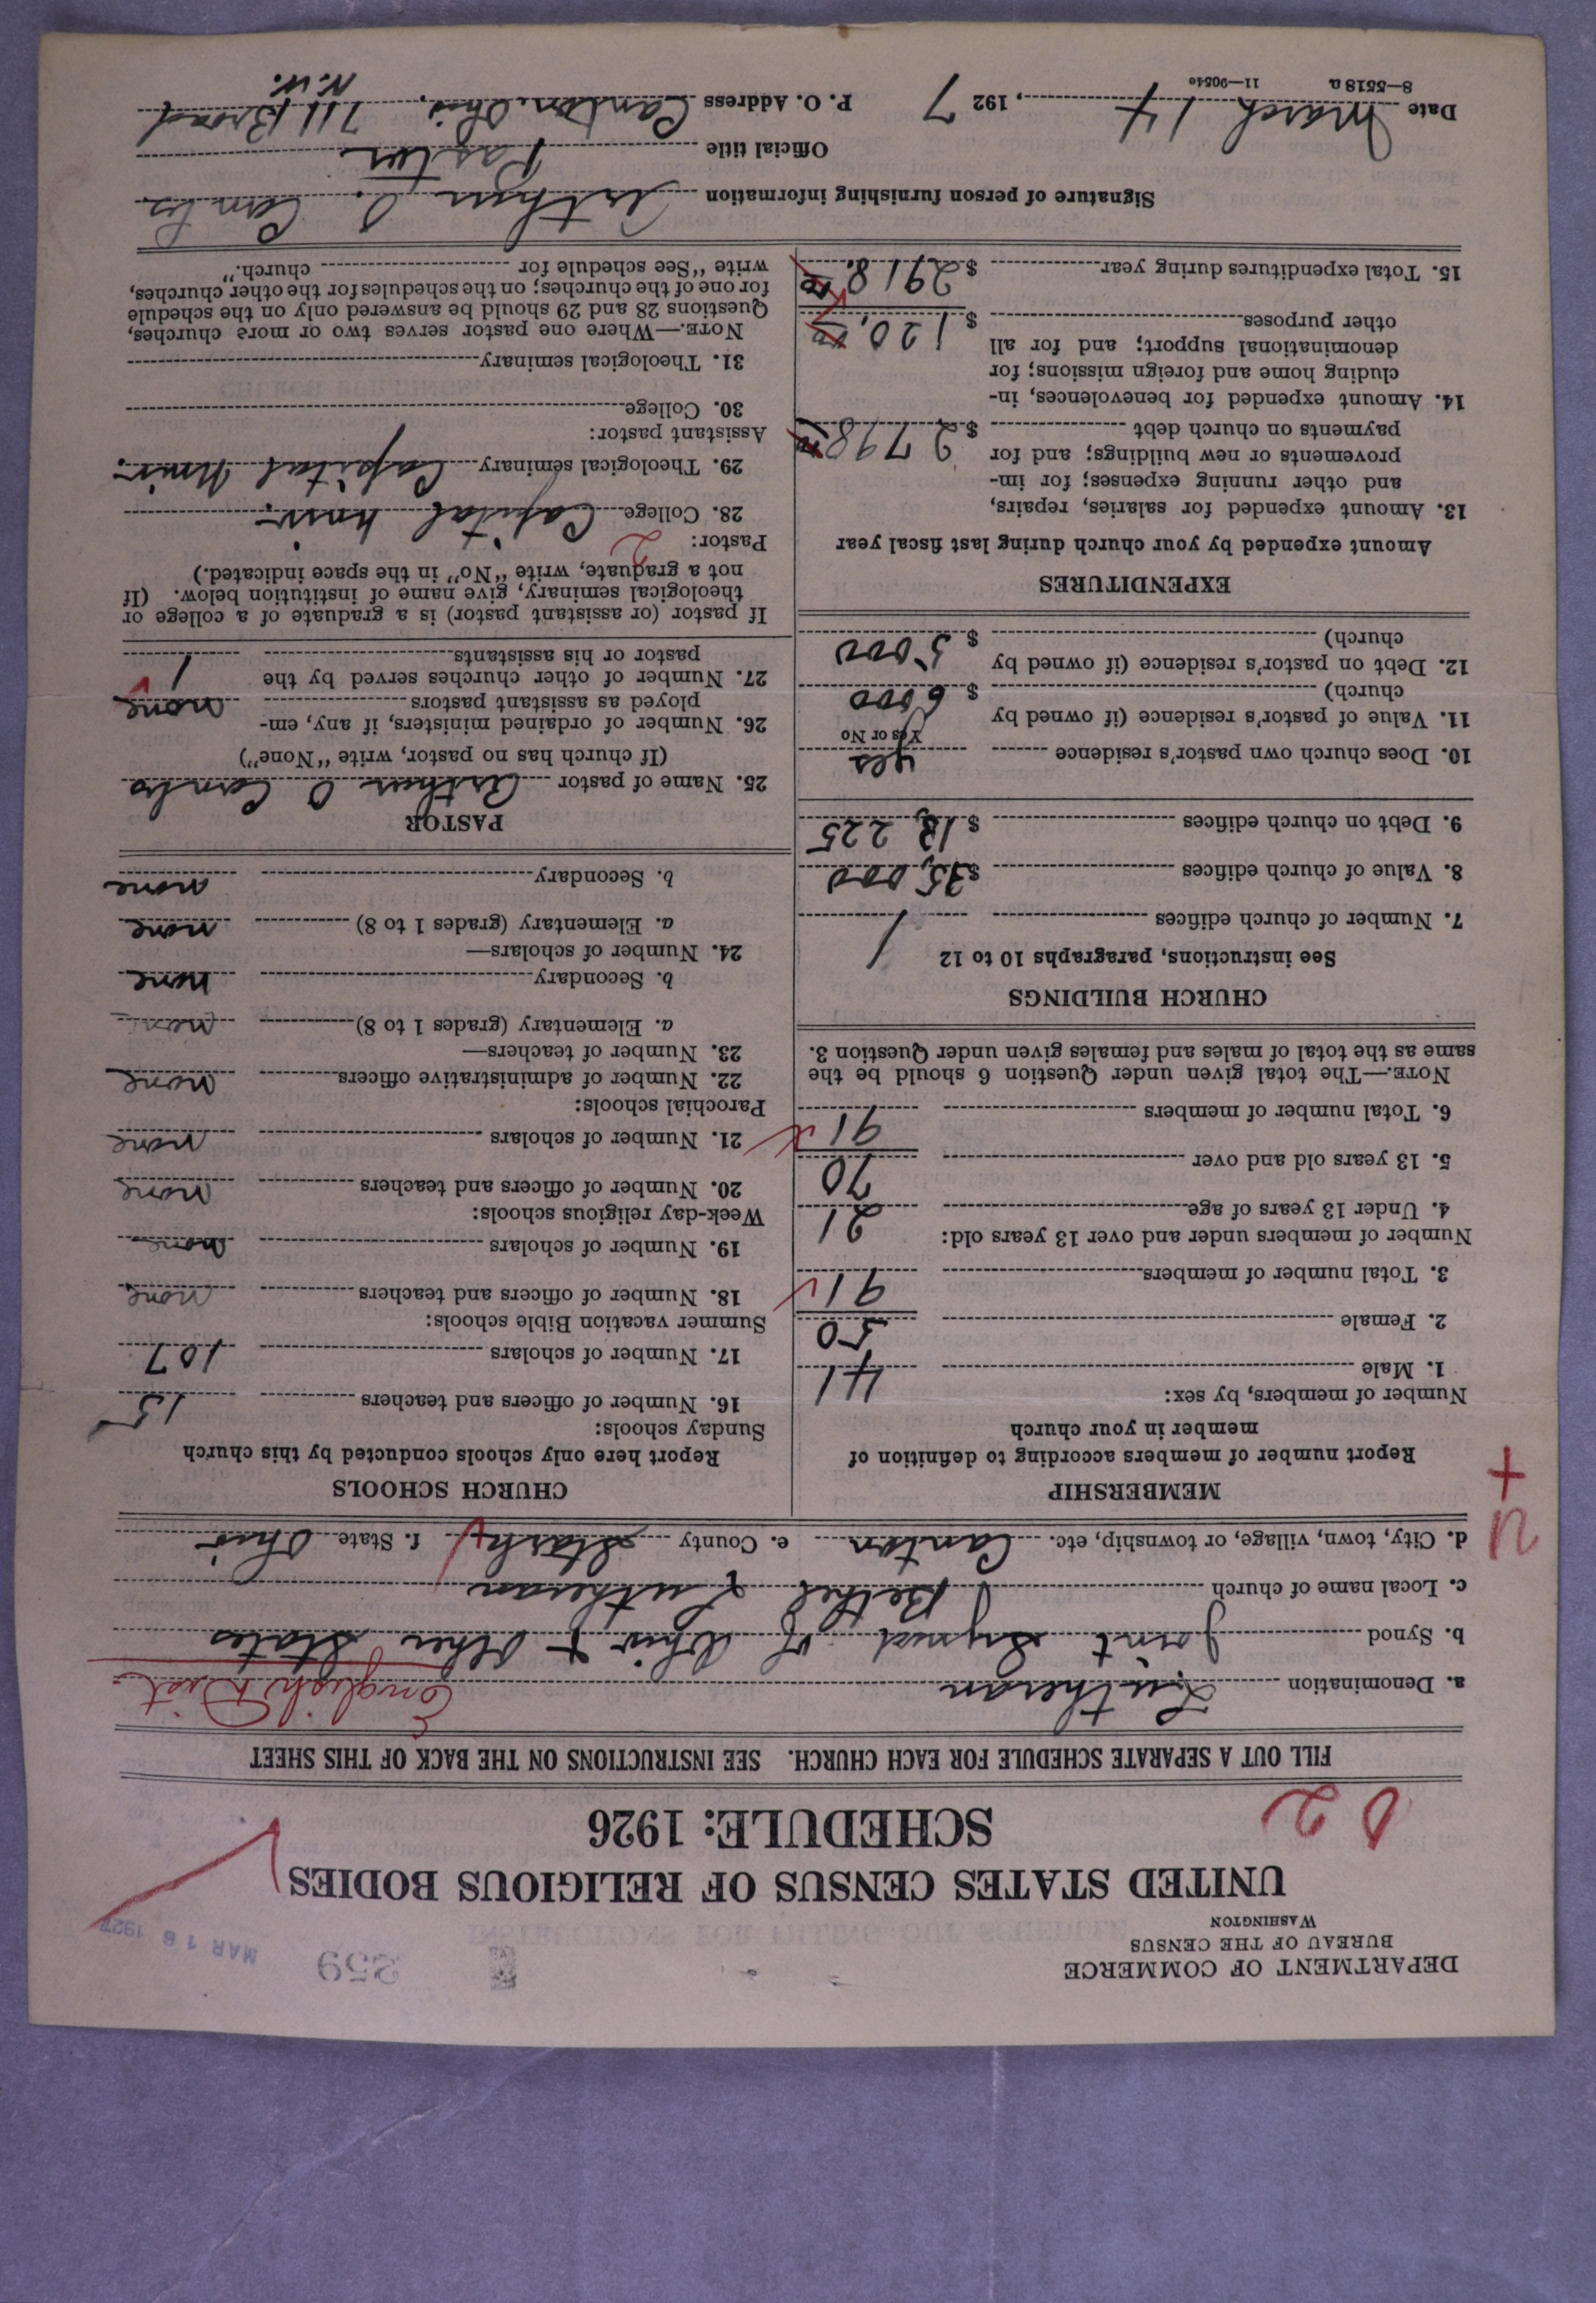 DEPARTMENT OF COMMERCE
BUREAU OF THE CENSUS
WASHINGTON
359
MAR 16 1927
UNITED STATES CENSUS OF RELIGIOUS BODIES
SCHEDULE: 1926
FILL OUT A SEPARATE SCHEDULE FOR EACH CHURCH. SEE INSTRUCTIONS ON THE BACK OF THIS SHEET
a. Denomination Lutheran English Dist
b. Synod Joint Synod of Ohio & Other States
c. Local name of church Bethel Lutheran
d. City, town, village, or township, etc. Canton e. County Stark f. State Ohio
MEMBERSHIP
Report number of members according to definition of
member in your church
Number of members, by sex:
1. Male 41
2. Female 50
3. Total number of members 91
Number of members under and over 13 years old:
4. Under 13 years of age 21
5. 13 years old and over 70
6. Total number of members 91
NOTE.—The total given under Question 6 should be the
same as the total of males and females given under Question 3.
CHURCH BUILDINGS
See instructions, paragraphs 10 to 12
7. Number of church edifices 1
8. Value of church edifices $35,000
9. Debt on church edifices $
10. Does church own pastor's residence yes
Yes or No
11. Value of pastor's residence (if owned by
church) $ 6000
12. Debt on pastor's residence (if owned by
church) $ 5000
EXPENDITURES
Amount expended by your church during last fiscal year
13. Amount expended for salaries, repairs,
and other running expenses; for im-
provements or new buildings; and for
payments on church debt $ 2798
14. Amount expended for benevolences, in-
cluding home and foreign missions; for
denominational support; and for all
other purposes $ 120.
15. Total expenditures during year $ 2918.
CHURCH SCHOOLS
Report here only schools conducted by this church
Sunday schools:
16. Number of officers and teachers 15
17. Number of scholars 107
Summer vacation Bible schools:
18. Number of officers and teachers none
19. Number of scholars none
Week-day religious schools:
20. Number of officers and teachers none
21. Number of scholars none
Parochial schools:
22. Number of administrative officers none
23. Number of teachers—
a. Elementary (grades 1 to 8) none
b. Secondary none
24. Number of scholars—
a. Elementary (grades 1 to 8) none
b. Secondary none
PASTOR
25. Name of pastor Arthur O
(If church has no pastor, write "None")
26. Number of ordained ministers, if any, em-
ployed as assistant pastors none
27. Number of other churches served by the
pastor or his assistants 1
If pastor (or assistant pastor) is a graduate of a college or
theological seminary, give name of institution below. (If
not a graduate, write "No" in the space indicated.)
Pastor: 2
28. College Capital Univ.
29. Theological seminary Capital Univ.
Assistant pastor:
30. College
31. Theological seminary
NOTE.—Where one pastor serves two or more churches,
Questions 28 and 29 should be answered only on the schedule
for one of the churches; on the schedules for the other churches,
write "See schedule for church."
Signature of person furnishing information Arthur O.
Official title Pastor
Date March 14, 1927 P. O. Address Canton, Ohio, 711 Broad
N.W.
8—5518 a 11—9054e